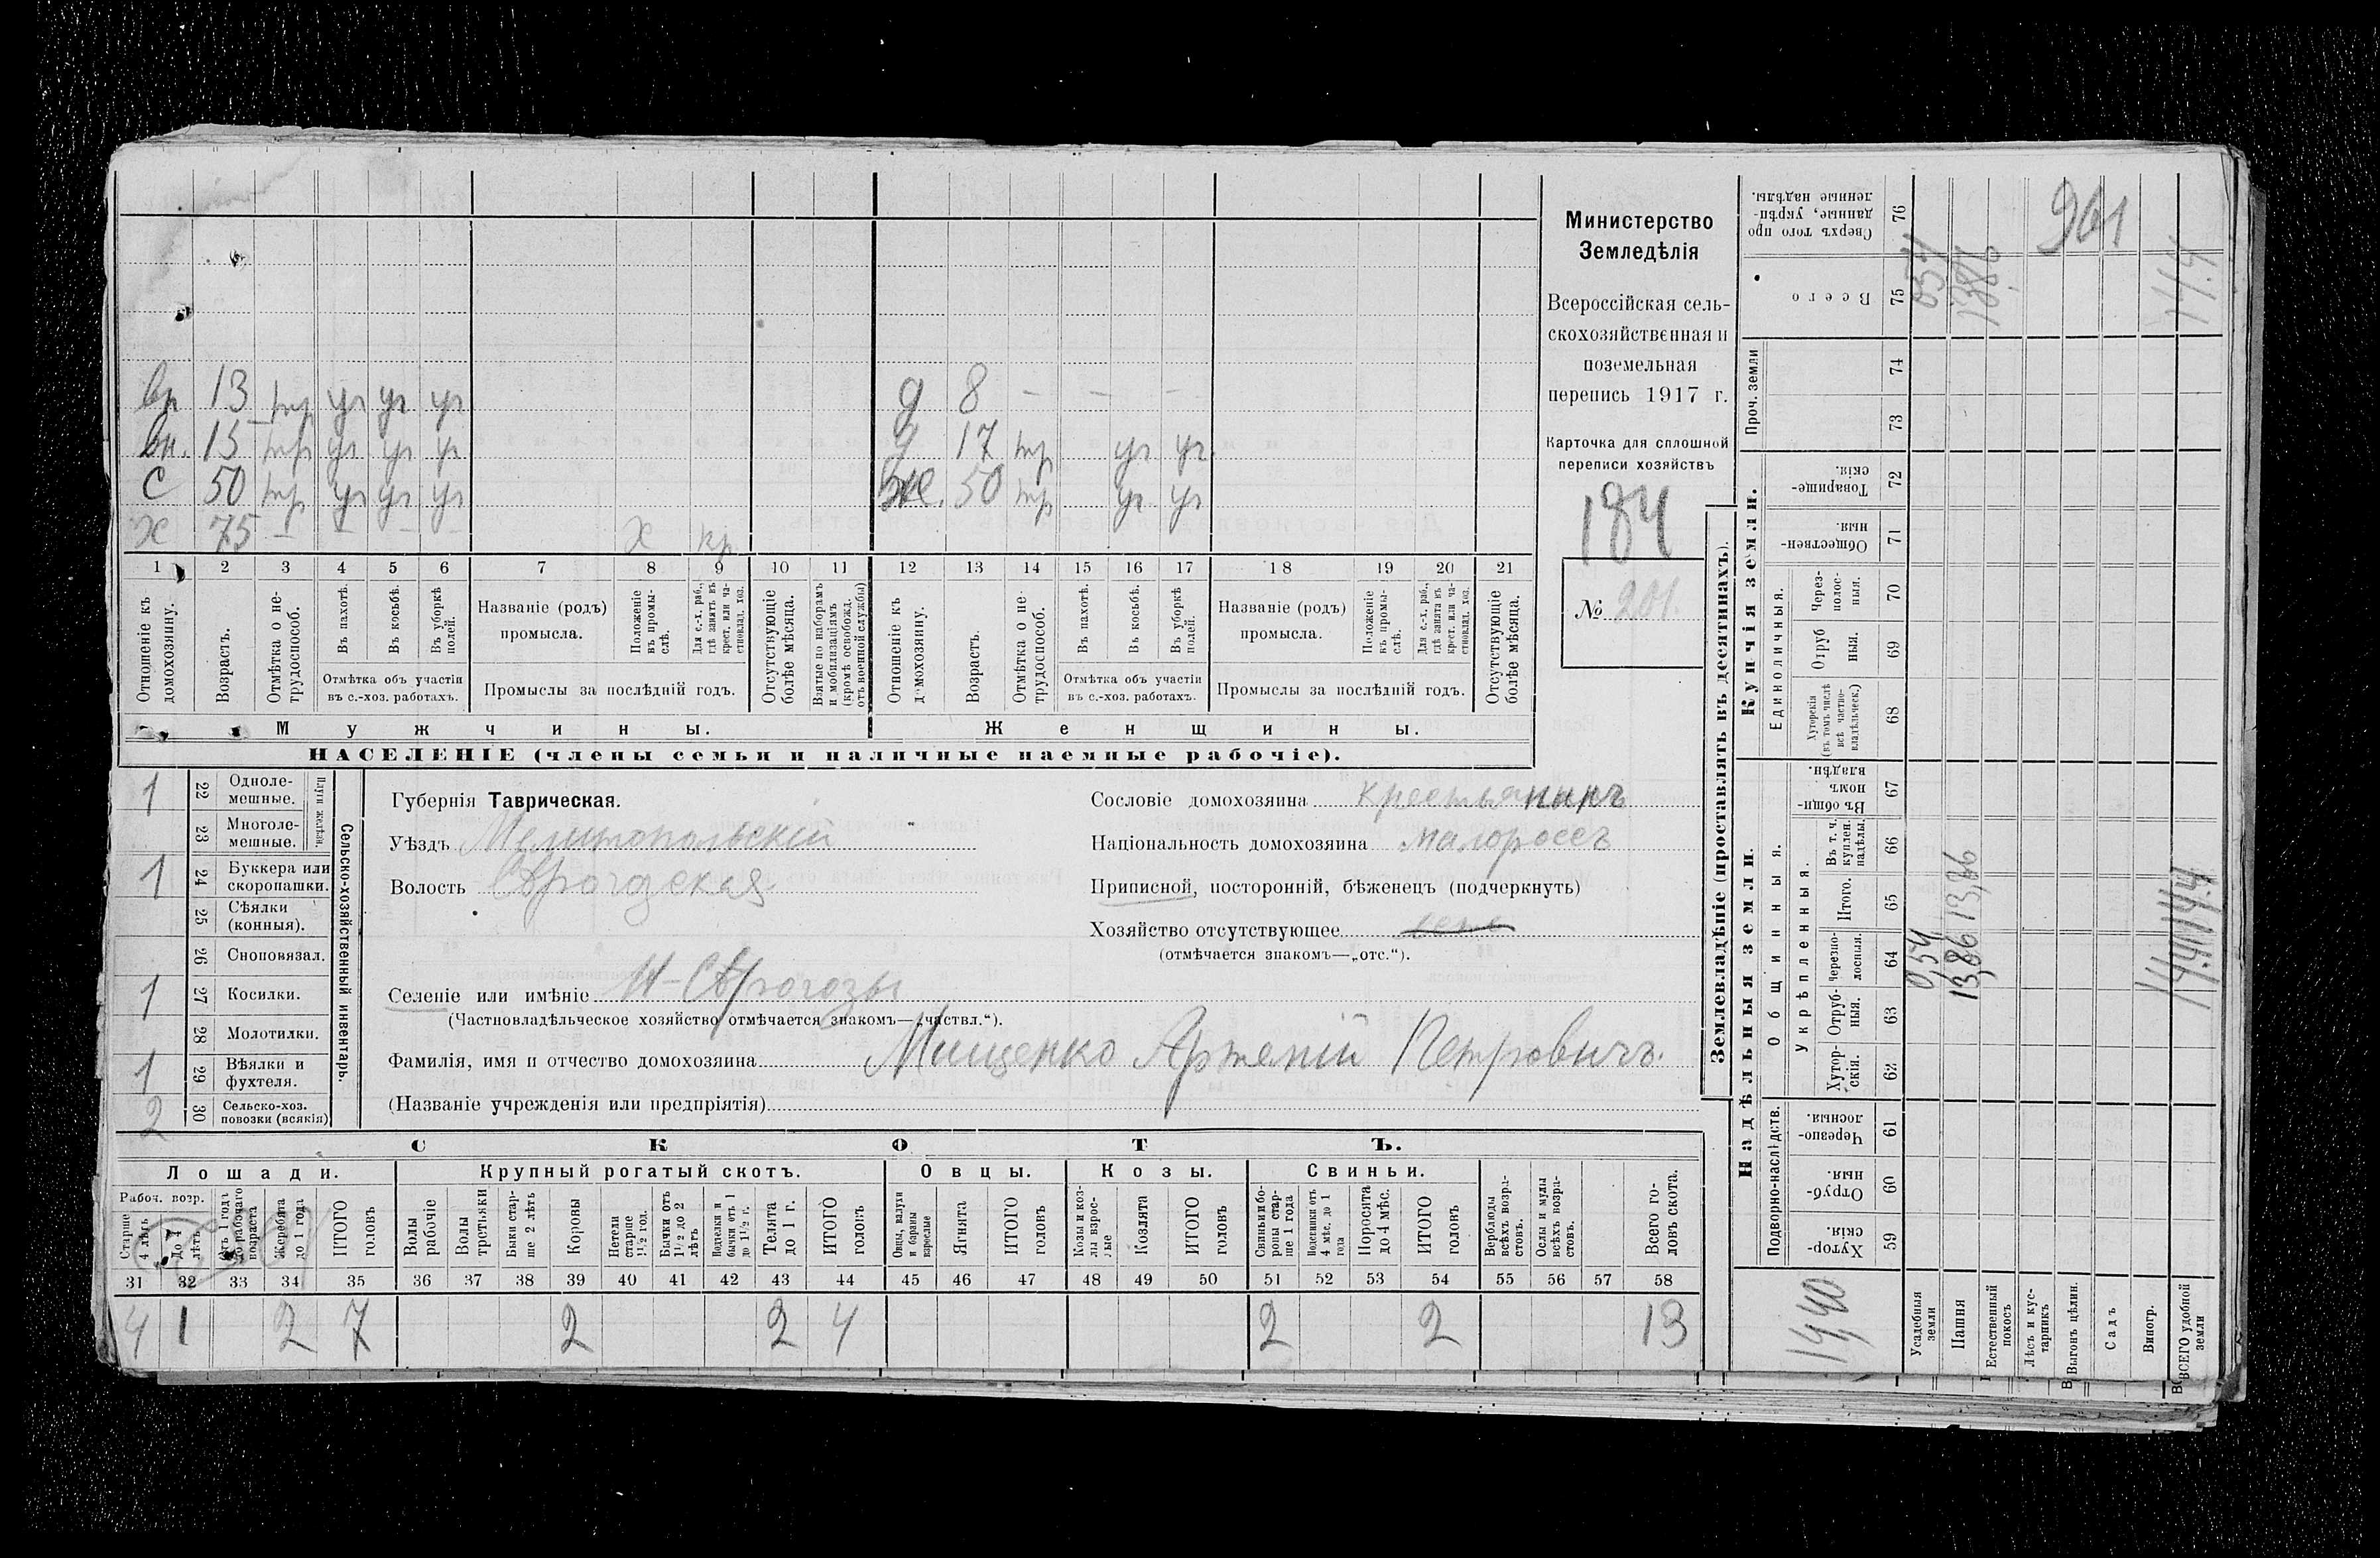 вр 13 тр уч уч уч
вн. 15 тр уч уч уч
с 50 тр уч уч уч
х 75 – – – – х кр
д 8 – – –
д 17 тр уч уч.
же. 50 тр уч уч
1 2 3 4 5 6 7 8 9 10 11 12 13 14 15 16 17 18 19 20 21
Отношеніе къ домохозяину.
Возрастъ.
Отмѣтка о нетрудоспособ.
Въ пахотѣ.
Въ косьбѣ.
Въ уборкѣ полей.
Отмѣтка объ участіи
въ с.-хоз. работахъ.
Названіе (родъ)
промысла.
Положеніе въ промыслѣ.
Для с.-х. раб., гдѣ занятъ въ крест. или частновлад. хоз.
Промыслы за послѣдній годъ.
Отсутствующіе болѣе мѣсяца.
Взятые по наборамъ и мобилизаціямъ (кромѣ освобожд. отъ военной службы)
Отношеніе къ домохозяину.
Возрастъ.
Отмѣтка о нетрудоспособ.
Въ пахотѣ.
Въ косьбѣ.
Въ уборкѣ полей.
Отмѣтка объ участіи
въ с.-хоз. работахъ.
Названіе (родъ)
промысла.
Положеніе въ промыслѣ.
Для с.-х. раб., гдѣ занята въ крест. или частновлад. хоз.
Промыслы за послѣдній годъ.
Отсутствующіе болѣе мѣсяца.
Мужчины.
Женщины.
НАСЕЛЕНІЕ (члены семьи и наличные наемные рабочіе).
Министерство
Земледѣлія
Всероссійская сель-
скохозяйственная и
поземельная
перепись 1917 г.
Карточка для сплошной
переписи хозяйствъ
184
№ 201.
1 22 Однолемешные.
23 Многолемешные.
Плуги желѣзн.
1 24 Буккера или скоропашки.
25 Сѣялки (конныя).
26 Сноповязал.
1 27 Косилки.
28 Молотилки.
1 29 Вѣялки и фухтеля.
2 30 Сельско-хоз. повозки (всякія)
Сельско-хозяйственный инвентарь.
Губернія Таврическая.
Уѣздъ Мелитопольскій
Волость
Селеніе или имѣніе Н-Сѣрогозы
(Частновладѣльческое хозяйство отмѣчается знакомъ—„частвл.“).
Фамилія, имя и отчество домохозяина Мищенко Артемій Петровичъ.
(Названіе учрежденія или предпріятія)
Сословіе домохозяина крестьянинъ
Національность домохозяина малороссъ
Приписной, посторонній, бѣженецъ (подчеркнуть)
Хозяйство отсутствующее
(отмѣчается знакомъ—„отс.“).
СКОТЪ.
Лошади. Крупный рогатый скотъ. Овцы. Козы. Свиньи.
Рабоч. возр.
Старше 4 лѣтъ
До 4 лѣтъ
Отъ 1 года до рабочаго возраста
Жеребята до 1 года
ИТОГО головъ
Волы рабочіе
Волы третьяки
Быки старше 2 лѣтъ
Коровы
Нетели старше 1½ год.
Бычки отъ 1½ до 2 лѣтъ
Подтелки и бычки отъ 1 до 1½ г.
Телята до 1 г.
ИТОГО головъ
Овцы, валухи и бараны взрослые
Ягнята
ИТОГО головъ
Козы и козлы взрослые
Козлята
ИТОГО головъ
Свиньи и боровы старше 1 года
Подсвинки отъ 4 мѣс. до 1 года
Поросята до 4 мѣс.
ИТОГО головъ
Верблюды всѣхъ возрастовъ.
Ослы и мулы всѣхъ возрастовъ.
Всего головъ скота.
31 32 33 34 35 36 37 38 39 40 41 42 43 44 45 46 47 48 49 50 51 52 53 54 55 56 57 58
4 1 2 7 2 2 4 2 2 13
Землевладѣніе (проставлять въ десятинахъ).
Надѣльныя земли.
Купчія земли.
Проч. земли
Сверхъ того проданные, укрѣпленные надѣлы. 76
Всего 75
74
73
Товарищескія. 72
Общественныя. 71
Единоличныя.
Черезполосныя. 70
Отрубныя. 69
Хуторскія (въ томъ числѣ всѣ частновладѣльческ.) 68
Въ общинномъ владѣн. 67
Общинныя.
Укрѣпленныя.
Въ т. ч. куплен. надѣлы. 66
Итого. 65
Черезполосныя. 64
Отрубныя. 63
Хуторскія. 62
Подворно-наслѣдств.
Черезполосныя. 61
Отрубныя. 60
Хуторскія. 59
Усадебныя земли 0,54 0,54
Пашня 13,86 13,86 13,86
Естественный покосъ
Лѣсъ и кустарникъ
Выгонъ цѣлин.
Садъ
Виногр.
ВСЕГО удобной земли 14.4 14.4 14.4
14,40
961